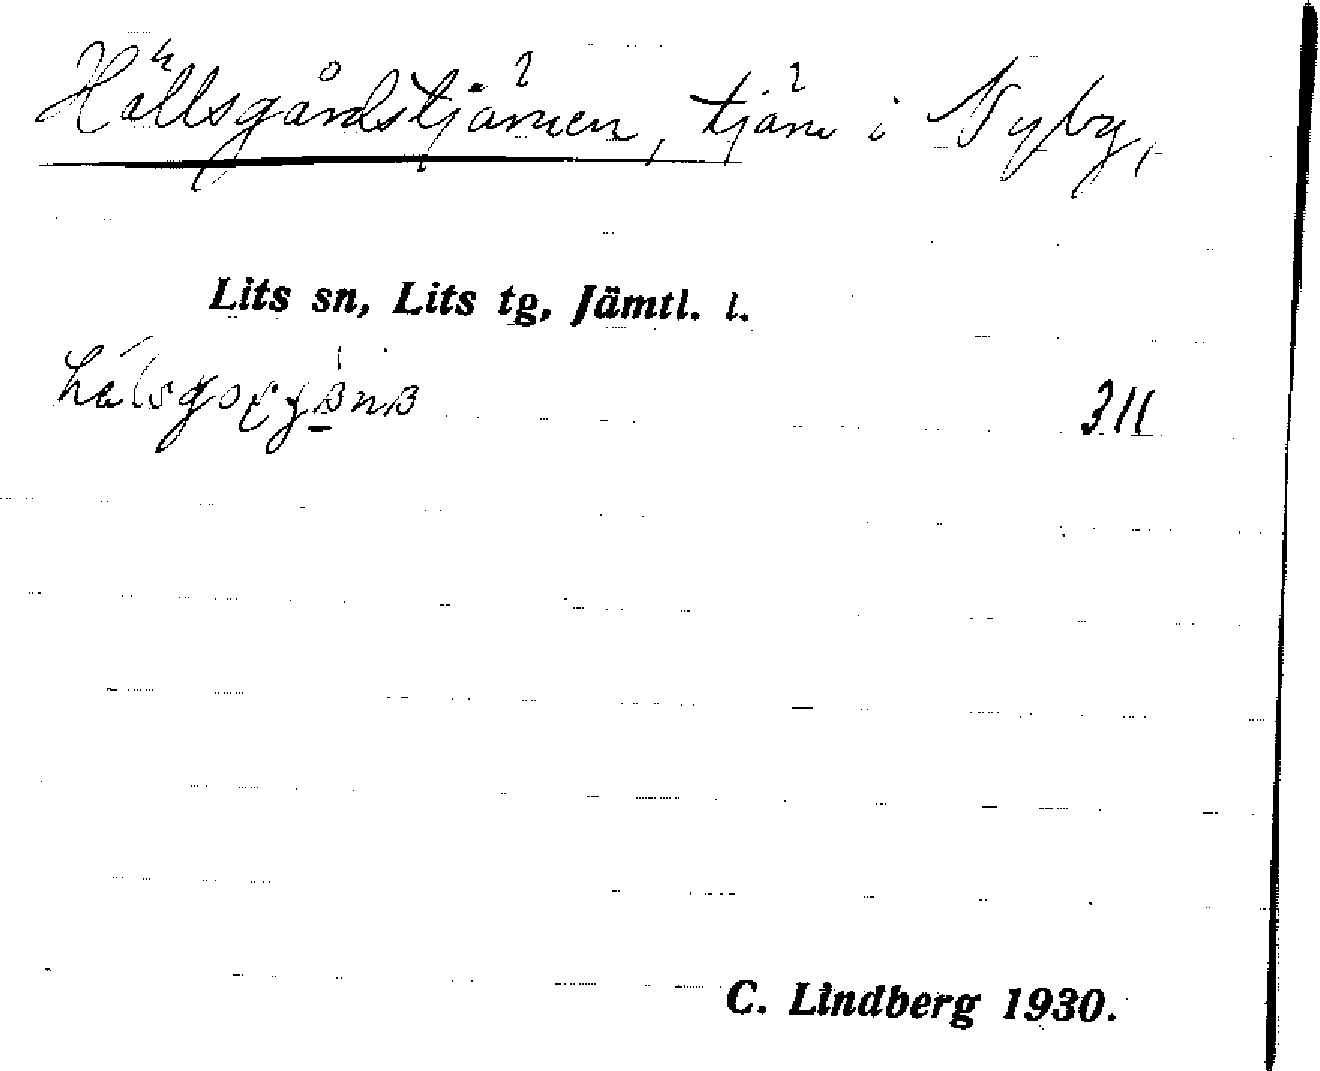 Hällsgårdstjärnen, tjärn i Nyby,
Lits sn, Lits tg, Jämtl. l.
311
C. Lindberg 1930.